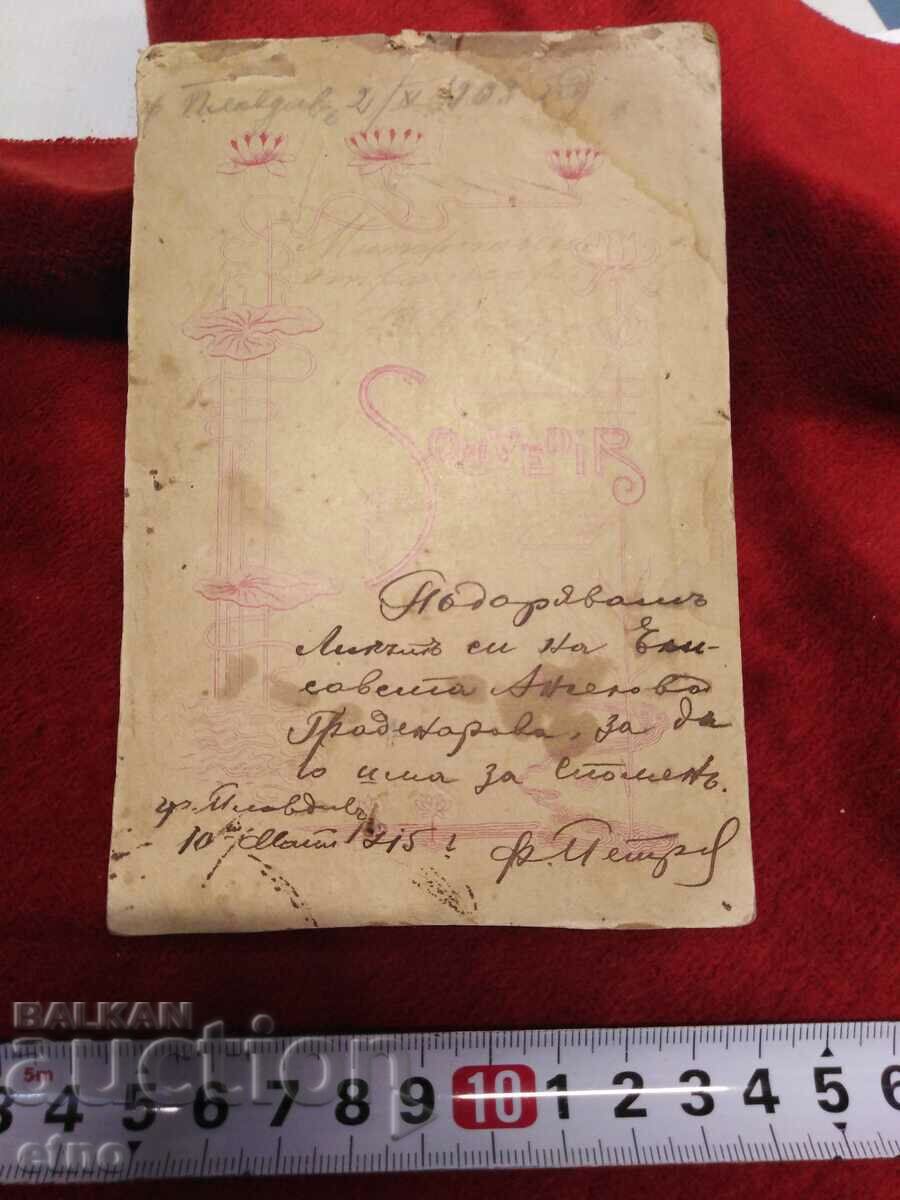 Пловдивъ, 2/X 1903
SOUVENIR
Подарявамъ
Ликътъ си на Ели-
савета Ангелова
Градинарова, за да
го има за споменъ.
гр. Пловдивъ
10 Мартъ 1915 г.
Ф. Петров
BALKAN
auction
etno
5m
3 4 5 6 7 8 9 10 1 2 3 4 5 6